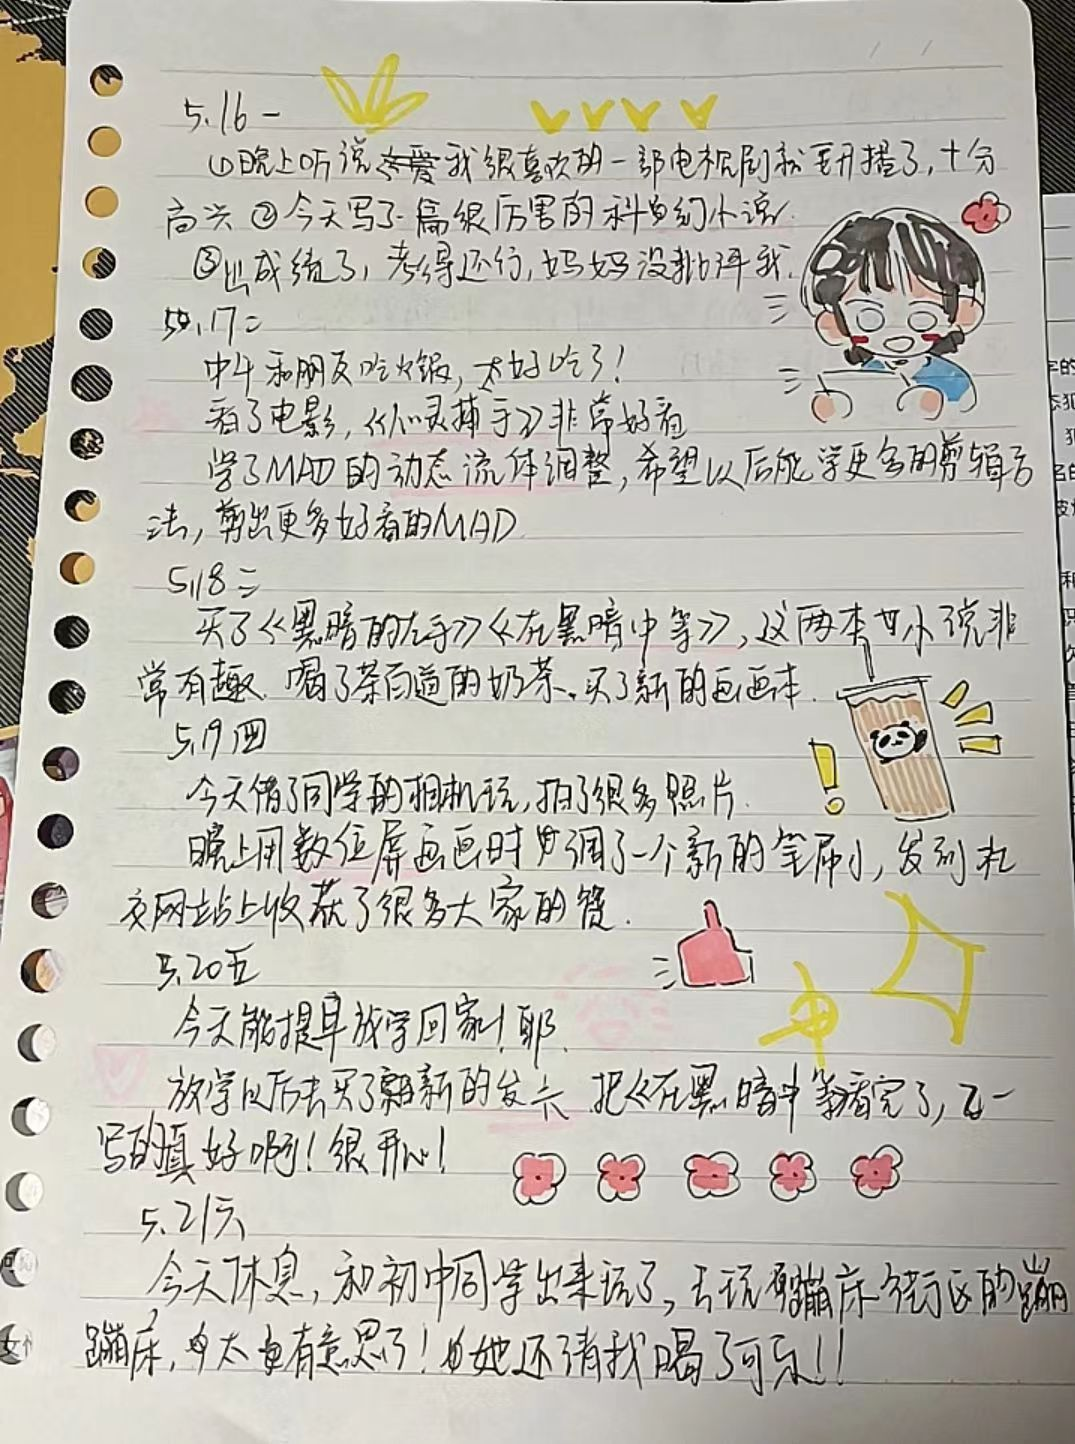 5.16一
①晚上听说我很喜欢的一部电视剧要开播了，十分
高兴②今天写了一篇很厉害的科幻小说.
③出成绩了，考得还行，妈妈没批评我.
5.17二
中午和朋友吃火锅，太好吃了！
看了电影，《心灵捕手》非常好看
学了MAD的动态流体调整，希望以后能学更多的剪辑方
法，剪出更多好看的MAD
5.18三
买了《黑暗的左手》《在黑暗中等》，这两本小说非
常有趣.喝了茶百道的奶茶.买了新的画画本.
5.19四
今天借了同学的相机玩，拍了很多照片.
晚上用数位屏画画时调了一个新的笔刷，发到社
交网站上收获了很多大家的赞.
5.20五
今天能提早放学回家！耶.
放学以后去买了新的发卡 把《在黑暗中等看完了，乙一
写的真好啊！很开心！
5.21六
今天休息，和初中同学出来玩了，去玩蹦床街区的蹦
蹦床，太有意思了！她还请我喝了可乐！！